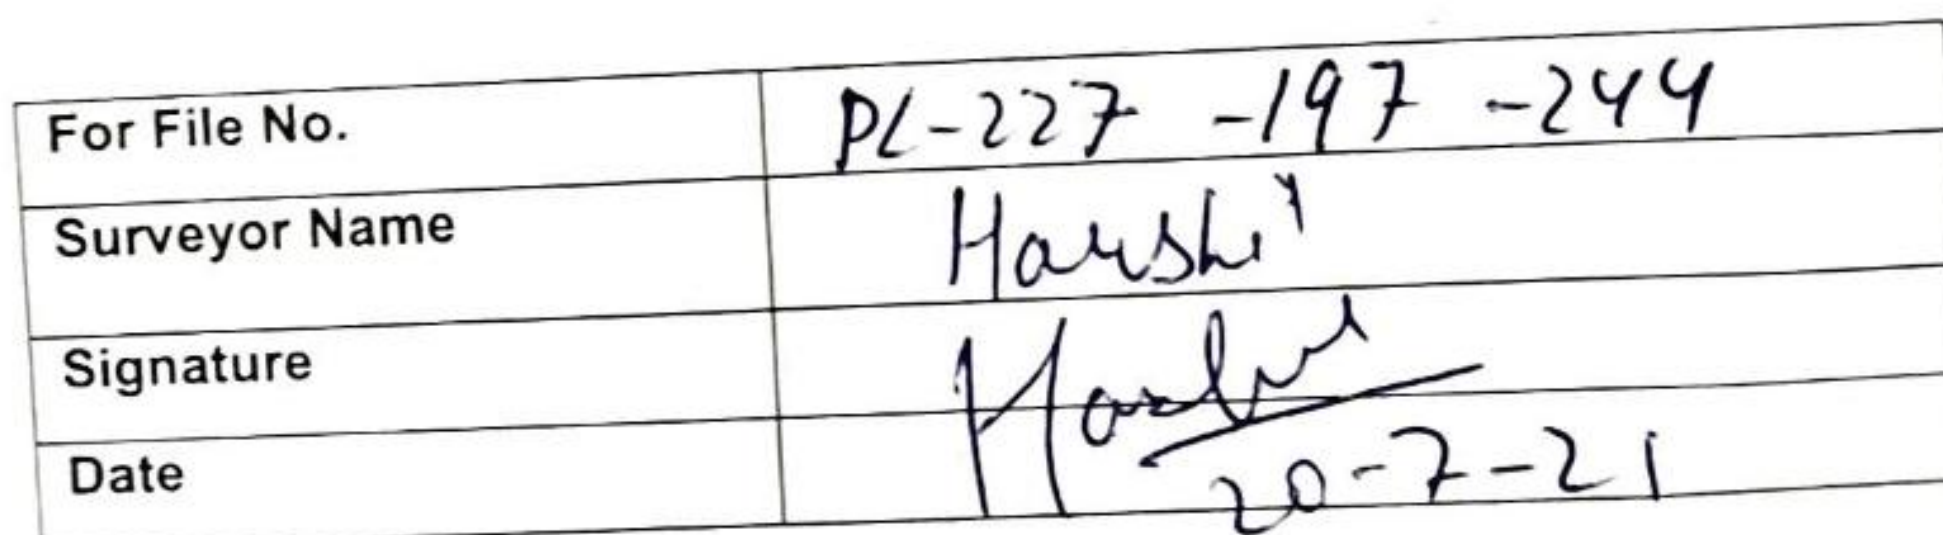 For File No. PL-227-197-244
Surveyor Name Harshit
Signature Harshit
Date 20-7-21